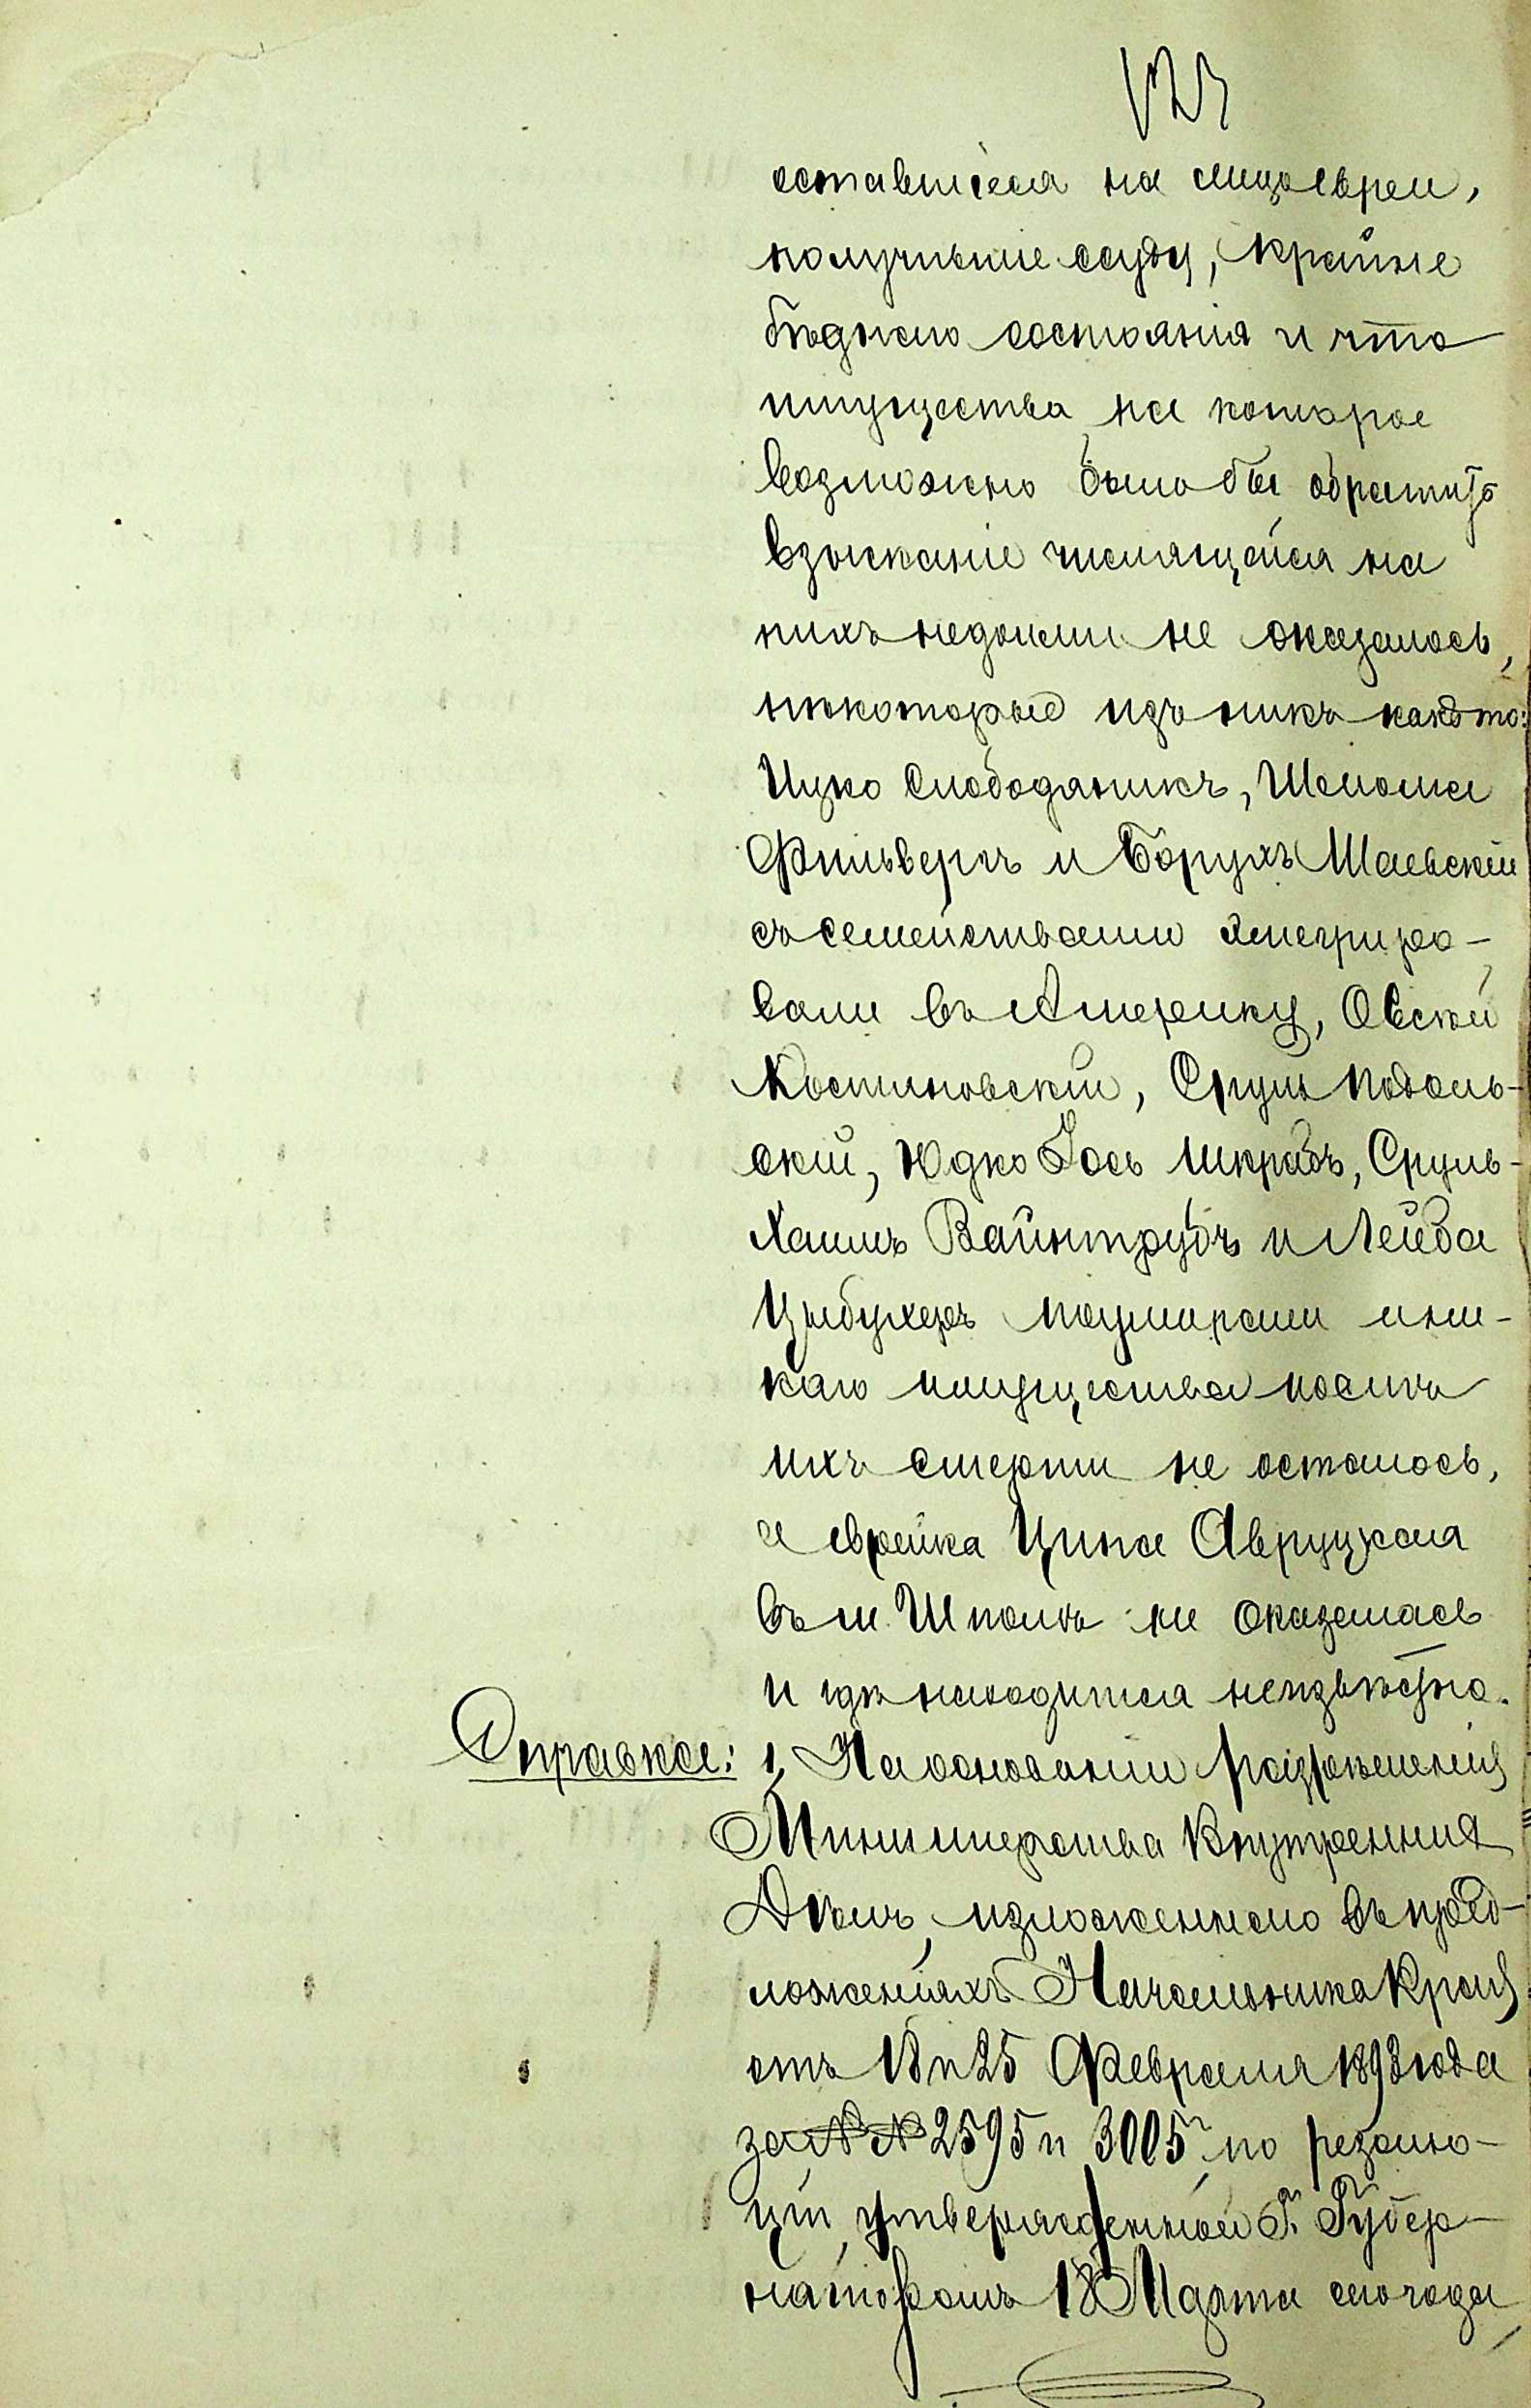 оставшіеся на лицо евреи,
получившіе ссуду, крайне
бѣднаго состоянія и что
имущества, на которое
возможно было бы обратить
взысканіе числящейся на
нихъ недоимки не оказалось,
нѣкоторые изъ нихъ какъ то:
Ицко Слободяникъ, Шлиома
Фильвергъ и Борухъ Шаевскій
съ семействами эмегриро-
вали въ Америку, Овсѣй
Костиновскій, Сруль Подоль-
скій, Юдко Іось Шкрабъ, Сруль-
Хаимъ Вайнтрубъ и Лейба
Цыбухеръ поумирали и ни-
каго имущества послѣ
ихъ смерти не осталось,
а еврейка Ципа Овруцкая
въ м. Шполѣ не оказалась
и гдѣ находится неизвѣстно.
Справка: 1, На основаніи разрѣшенія
Министерства Внутреннихъ
Дѣлъ, изложеннаго въ пред-
ложеніяхъ Начальника Края
отъ 18 и 25 Февраля 1893 года
за №№ 2595 и 3005, по резолю-
ціи, утвержденной Г. Губер-
наторомъ 18 Марта того года